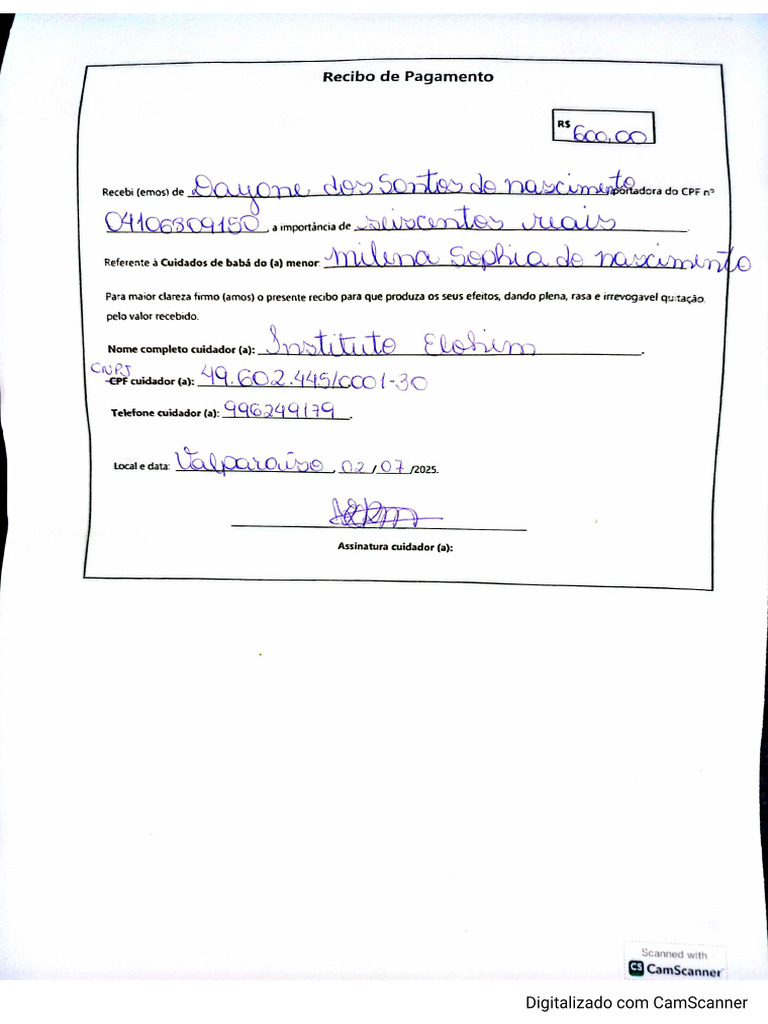 Recibo de Pagamento
R$ 600,00
Recebi (emos) de Dayane dos Santos do nascimento portadora do CPF nº
04106309150, a importância de seiscentos reais.
Referente à Cuidados de babá do (a) menor: milena Sophia do nascimento
Para maior clareza firmo (amos) o presente recibo para que produza os seus efeitos, dando plena, rasa e irrevogavel quitação,
pelo valor recebido.
Nome completo cuidador (a): Instituto Elohim.
CNPJ
CPF cuidador (a): 49.602.445/0001-30
Telefone cuidador (a): 996249179.
Local e data: Valparaíso, 02/07/2025.
Assinatura cuidador (a):
Scanned with
CS CamScanner
Digitalizado com CamScanner